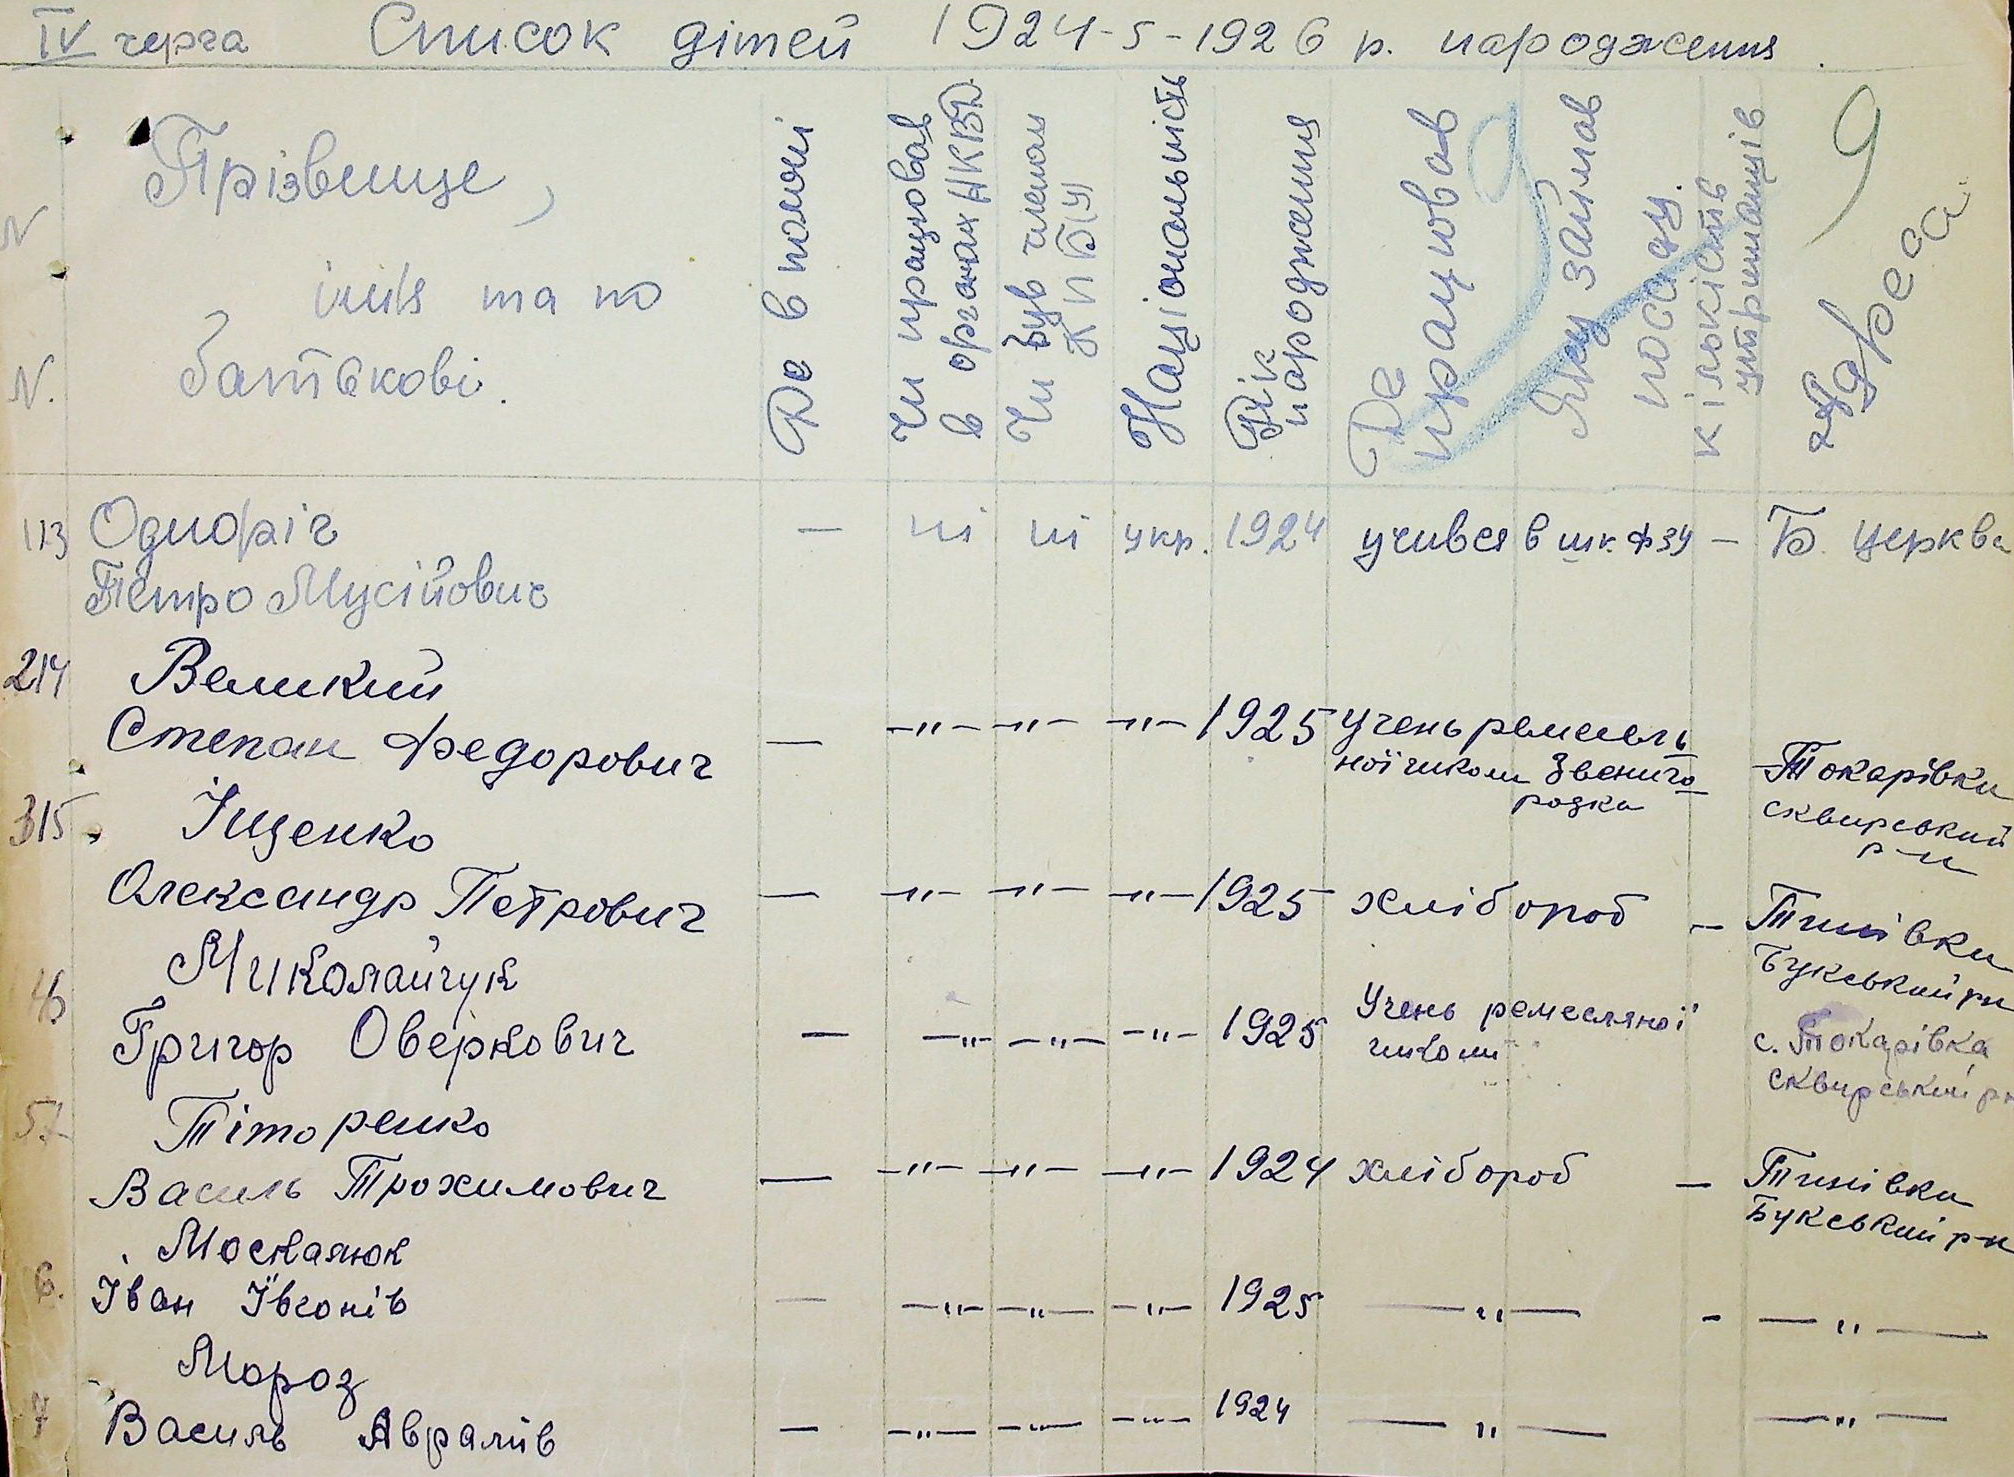 IV черга Список дітей 1924-5-1926 р. народження.
9
N
N.
Прізвище,
ім'я та по
батькові.
Де в полоні
Чи працював
в органах НКВД
Чи був членом
КПб/У
Національність
Рік
народження
Де
працював
Яку займав
посаду.
кількість
утриманців
Адреса
113 Однофіч — ні ні укр. 1924 учився в шк. ФЗУ — Б. церква
Петро Мусійович
214 Великий
Степан Федорович — —"— —"— —"— 1925 Учень ремесель
ної школи Звениго
родка
Токарівка
сквирський
р-н
315 Іщенко
Олександр Петрович — —"— —"— —"— 1925 хлібороб — Тинівка
Букський рн
46 Миколайчук
Григор Оверкович — —"— —"— —"— 1925 Учень ремесляної
школи
с. Токарівка
сквирський рн
57 Тіторенко
Василь Трохимович — —"— —"— —"— 1924 хлібороб — Тинівка
Букський р-н
6. Москалюк
Іван Ївгонів — —"— —"— —"— 1925 —"— - —"—
7 Мороз
Василь Аврамів — —"— —"— —"— 1924 —"— —"—